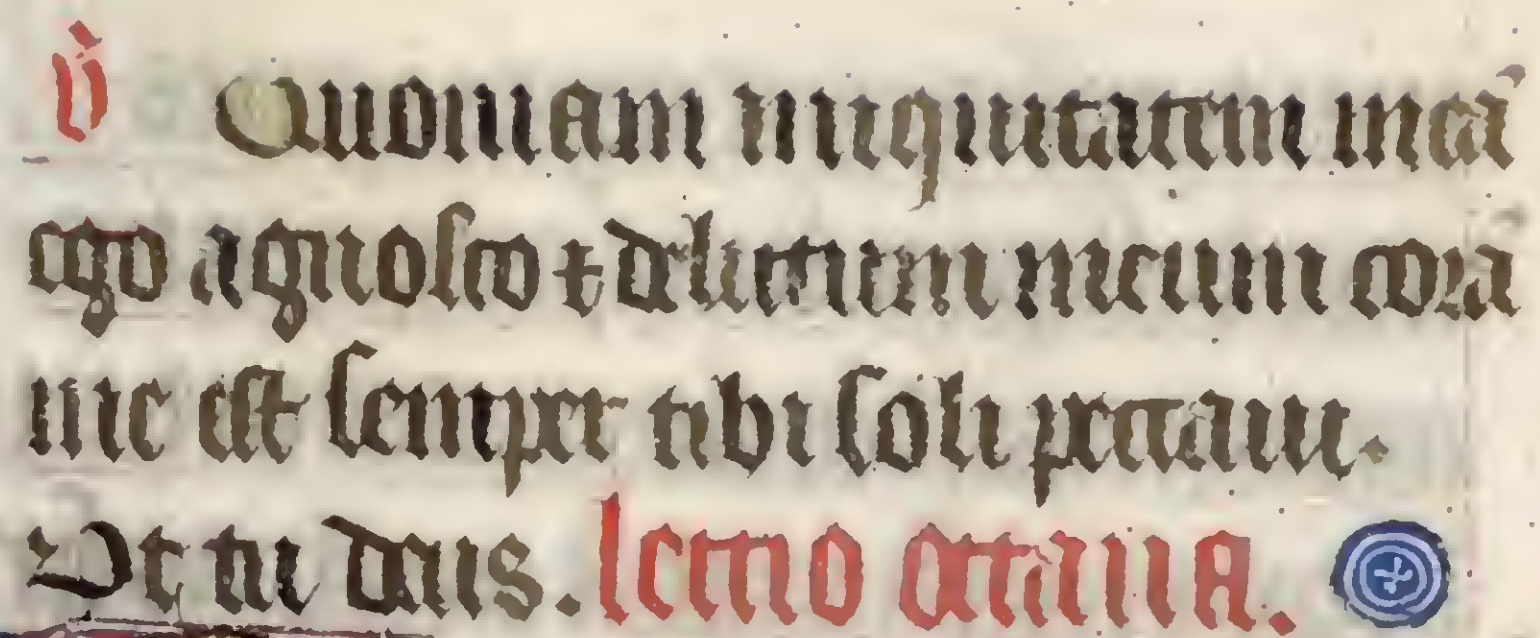 v̀ Quoniam iniquitatem meā
ego agnosco ⁊ delictum meum corā
me est semper tibi soli peccaui.
Et tu dnus. lectio octaua.